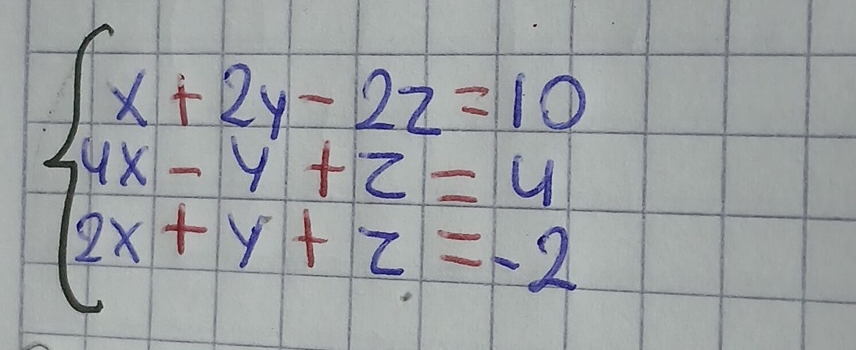 x + 2y - 2z = 10
4x - y + z = 4
2x + y + z = -2